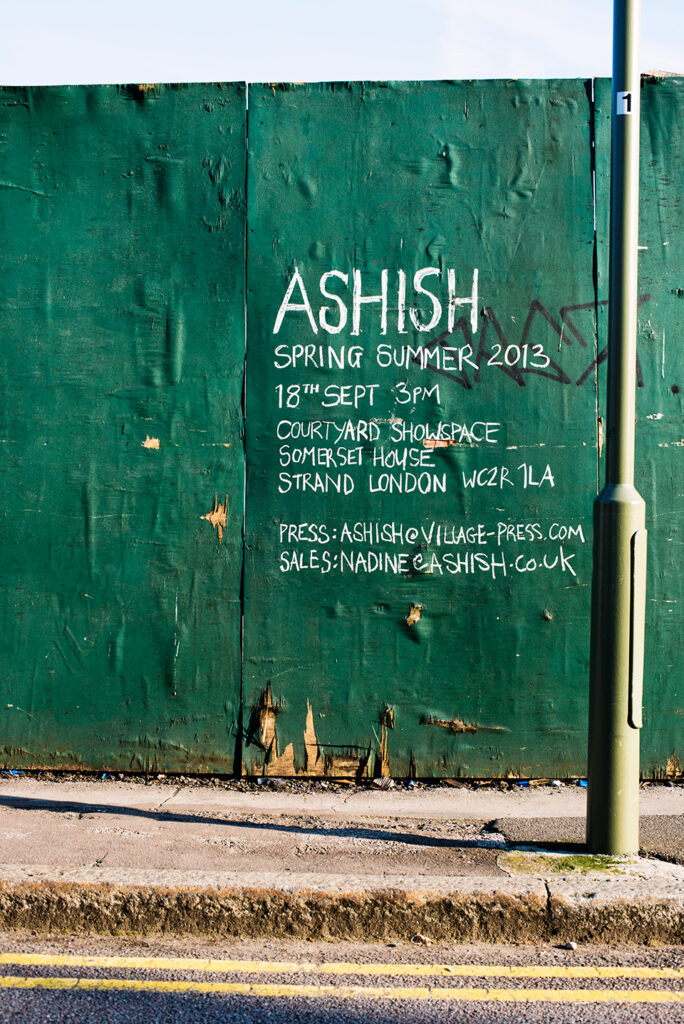 1
ASHISH
SPRING SUMMER 2013
18TH SEPT 3PM
COURTYARD SHOWSPACE
SOMERSET HOUSE
STRAND LONDON WC2R 1LA
PRESS:ASHISH@VILLAGE-PRESS.COM
SALES:NADINE@ASHISH.CO.UK